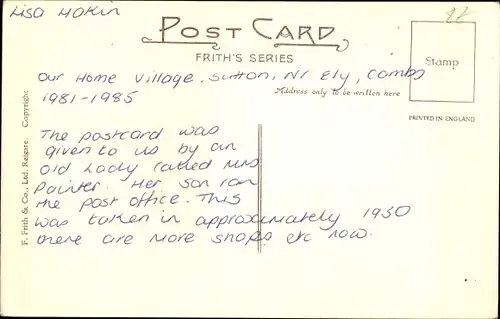 Lisa Hakin
POST CARD
FRITH'S SERIES
Stamp
Our Home Village. Sutton, Nr Ely, Cambs
1981-1985
Address only to be written here
PRINTED IN ENGLAND
F. Frith & Co., Ltd. Reigate. Copyright
The postcard was
given to us by an
old Lady called Mrs
Painter. Her son ran
the post office. This
was taken in approximately 1930
there are more shops etc now.